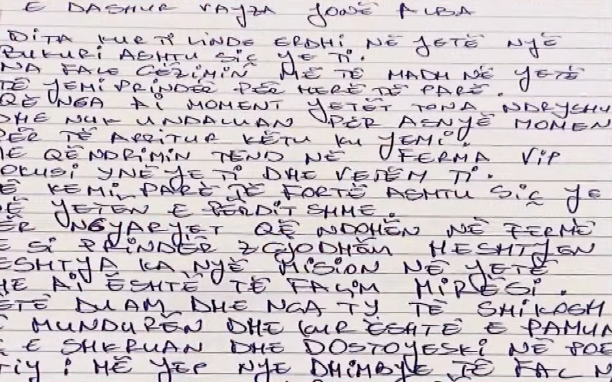 E DASHUR VAJZA JONË ALBA
DITA KUR TI LINDE ERDHI NË JETË NJË
BUKURI ASHTU SIÇ JE TI.
NA FALE GËZIMIN MË TË MADH NË JETË
TË JEMI PRINDËR PËR HERË TË PARË.
QË NGA AI MOMENT JETËT TONA NDRYSHU
DHE NUK U NDALUAN PËR ASNJË MOMEN
PËR TË ARRITUR KËTU KU JEMI.
ME QËNDRIMIN TËND NË FERMA VIP
FOKUSI YNË JE TI DHE VETËM TI.
E KEMI PARË TË FORTË ASHTU SIÇ JE
NË JETËN E PËRDITSHME.
PËR NGJARJET QË NDOHËN NË FERMË
E SI PRINDËR ZGJODHËM HESHTJEN
HESHTJA KA NJË MISION NË JETË
DHE AI ËSHTË TË FALIM MIRËSI.
KËTË DUAM DHE NGA TY TË SHIKOSH
E MUNDURËN DHE KUR ËSHTË E PAMUN
E SHKRUAN DHE DOSTOYESKI NË POE
TIJ I MË JEP NJE DHIMBJE TË FAL N